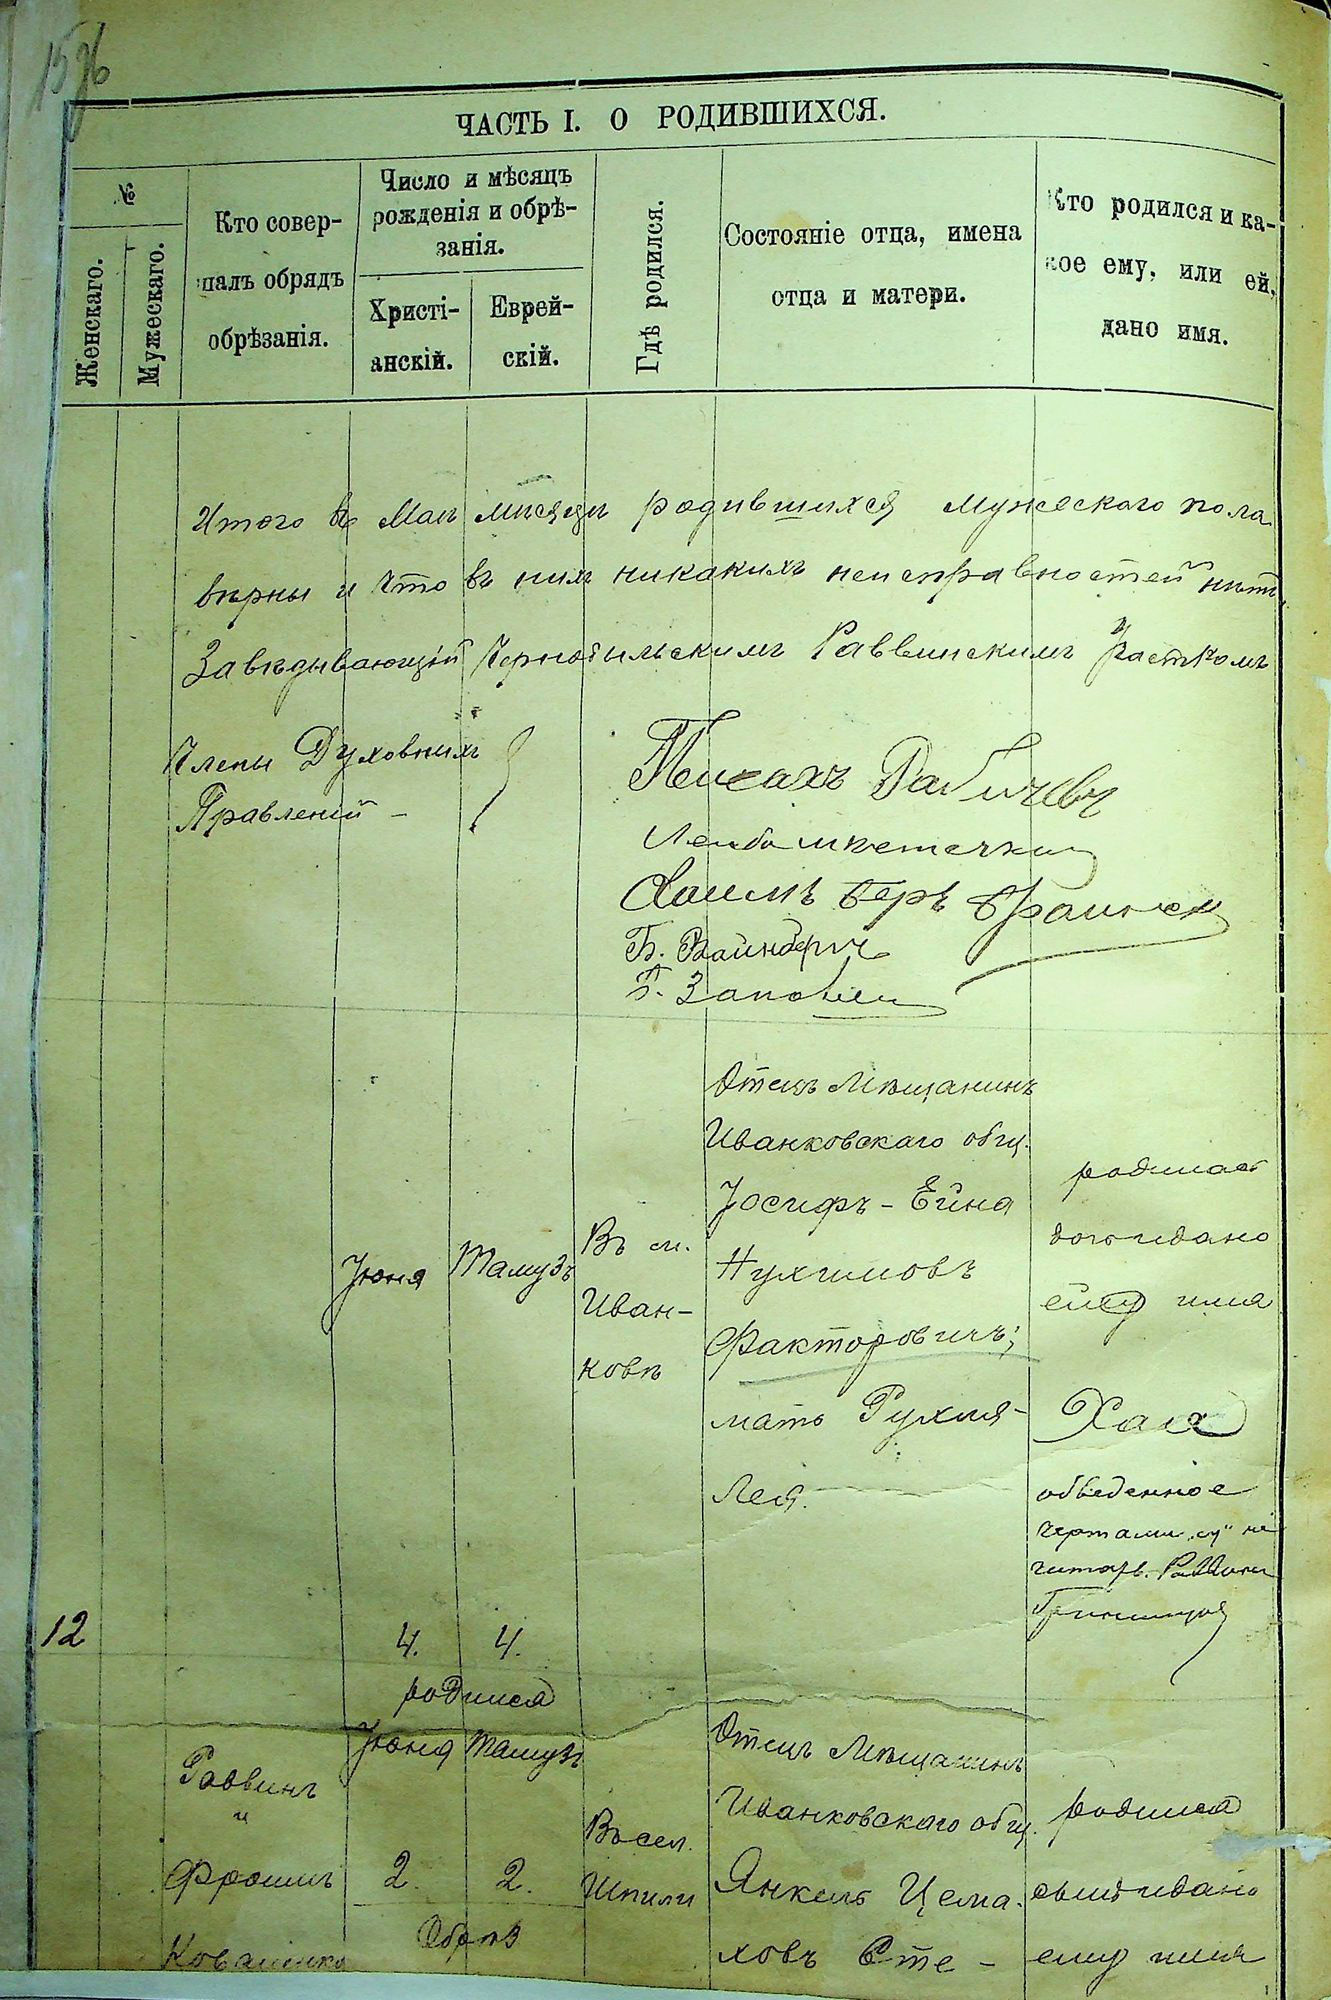 ЧАСТЬ I. О РОДИВШИХСЯ.
№
Женскаго.
Мужескаго.
Кто совер-
шалъ обрядъ
обрѣзанія.
Число и мѣсяцъ
рожденія и обрѣ-
занія.
Христі-
анскій.
Еврей-
скій.
Гдѣ родился.
Состояніе отца, имена
отца и матери.
Кто родился и ка-
кое ему, или ей,
дано имя.
Итого въ Маѣ мѣсяцѣ родившихся мужескаго пола
вѣрны и что въ нихъ никакихъ неисправностей нѣтъ,
Завѣдывающій Чернобыльскимъ Раввинскимъ Участкомъ
Члены Духовныхъ
Правленій -
Пейсахъ Рабичевъ
Лейба
Хаимъ Беръ
Б.
Іюня
Тамузъ
Въ м.
Иван-
ковѣ
Отецъ Мѣщанинъ
Иванковскаго общ.
Іосифъ-Ейна
Нухимовъ
Факторовичъ;
мать Рухля-
Лея.
родилась
дочь и дано
ей имя
Хая
обведенное
чертами „су" не
читать. Раввинъ
12
4. 4.
родился
Іюня Тамузъ
2. 2.
Обрѣз
Раввинъ
и
Фроимъ
Коваленко
Въ сел.
Шпили
Отецъ Мѣщанинъ
Иванковскаго общ.
Янкель Цема-
ховъ Сте-
родился
сынъ и дано
ему имя